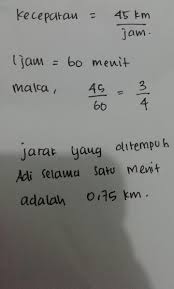 kecepatan = 45 km / jam.
1 jam = 60 menit
maka, 45/60 = 3/4
jarak yang ditempuh
Adi selama satu menit
adalah 0,75 km.